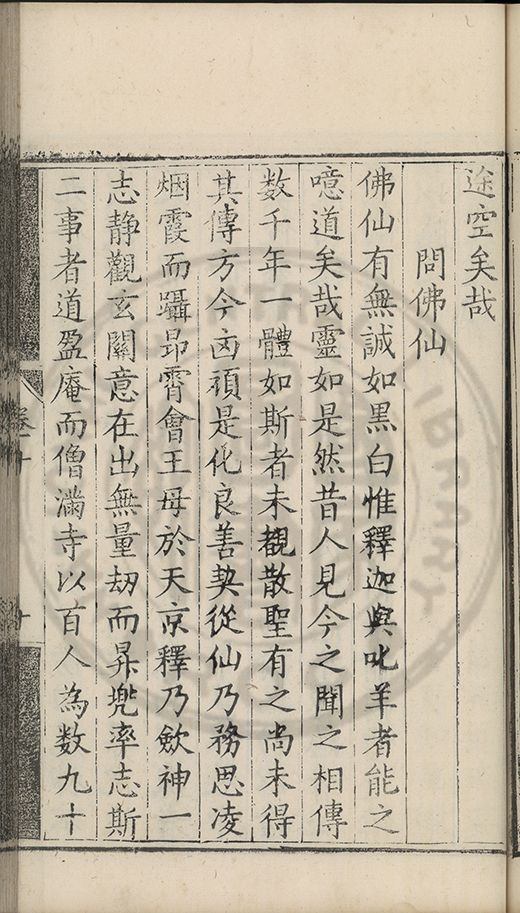 途空矣哉
問佛仙
佛仙有無誠如黒白惟釋迦與叱羊者能之
噫道矣哉靈如是然昔人見今之聞之相傳
数千年一體如斯者未覩散聖有之尚未得
其傳方今凶頑是化良善契從仙乃務思凌
烟霞而躡昻霄會王母於天京釋乃歛神一
志静觀玄關意在出無量刼而昇兠率志斯
二事者道盈庵而僧滿寺以百人為数九十
卷十